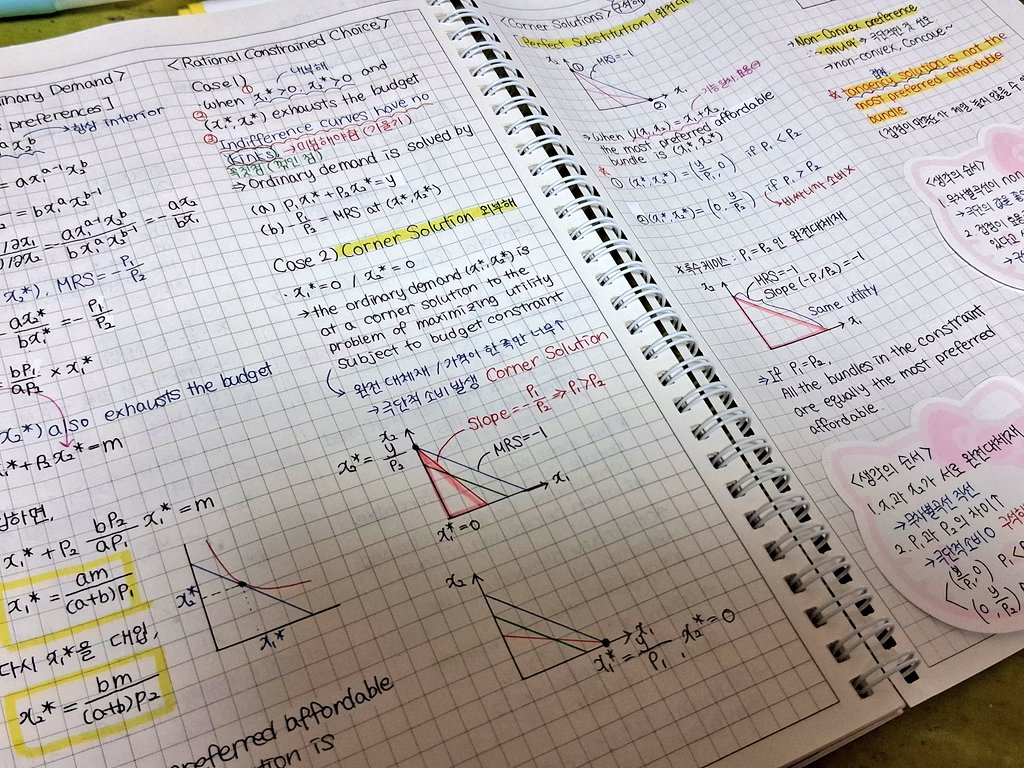 inary Demand>
preferences]
→ 항상 interior
= ax₁ᵃ⁻¹x₂ᵇ
= bx₁ᵃx₂ᵇ⁻¹
= - ax₂/bx₁
x₂*), MRS = -P₁/P₂
ax₂*/bx₁* = -P₁/P₂
= bP₁/aP₂ × x₁*
x₂*) also exhausts the budget
x₁* + P₂x₂* = m
하면,
x₁* + P₂ bP₂/aP₁ x₁* = m
x₁* = am/(a+b)P₁
다시 x₁*을 대입,
x₂* = bm/(a+b)P₂
preferred affordable
tion is
<Rational Constrained Choice>
Case 1) 내부해
① when x₁*>0, x₂*>0 and
② (x₁*, x₂*) exhausts the budget
③ Indifference curves have no
'kinks' → 미분해야함 (기울기)
⇒ Ordinary demand is solved by
(a) P₁x₁* + P₂x₂* = y
(b) -P₁/P₂ = MRS at (x₁*, x₂*)
Case 2) Corner Solution 외부해
· x₁*=0 / x₂*=0
→ the ordinary demand (x₁*, x₂*) is
at a corner solution to the
problem of maximizing utility
subject to budget constraint
완전 대체재 / 가격이 한쪽만 너무↑
→ 극단적 소비 발생 Corner Solution
Slope = -P₁/P₂ ⇒ P₁>P₂
MRS=-1
x₂
x₂* = y/P₂
x₁
x₁*=0
x₂*
x₁*
x₂
x₁
x₁* = y/P₁, x₂*=0
<Corner Solutions>
Perfect Substitution]
MRS=-1
①
②
x₁
→ when U(x₁, x₂) = x₁+x₂,
the most preferred affordable
bundle is (x₁*, x₂*)
① (x₁*, x₂*) = (y/P₁, 0) if P₁ < P₂
② (x₁*, x₂*) = (0, y/P₂) if P₁ > P₂
→ 비싸니까 소비 x
* 특수케이스 : P₁=P₂인 완전대체재
x₂
MRS=-1
Slope (-P₁/P₂) = -1
Same utility
x₁
⇒ If P₁=P₂,
All the bundles in the constraint
are equally the most preferred
affordable.
→ Non-Convex preference
→ non-convex, Concave~
* tangency solution is not the
most preferred affordable
bundle
<생각의 순서>
<생각의 순서>
1. x₁과 x₂가 서로 완전대체재
→ 무차별곡선 직선
2. P₁과 P₂의 차이↑
→ 극단적 소비 0
(y/P₁, 0) P₁<P
(0, y/P₂)